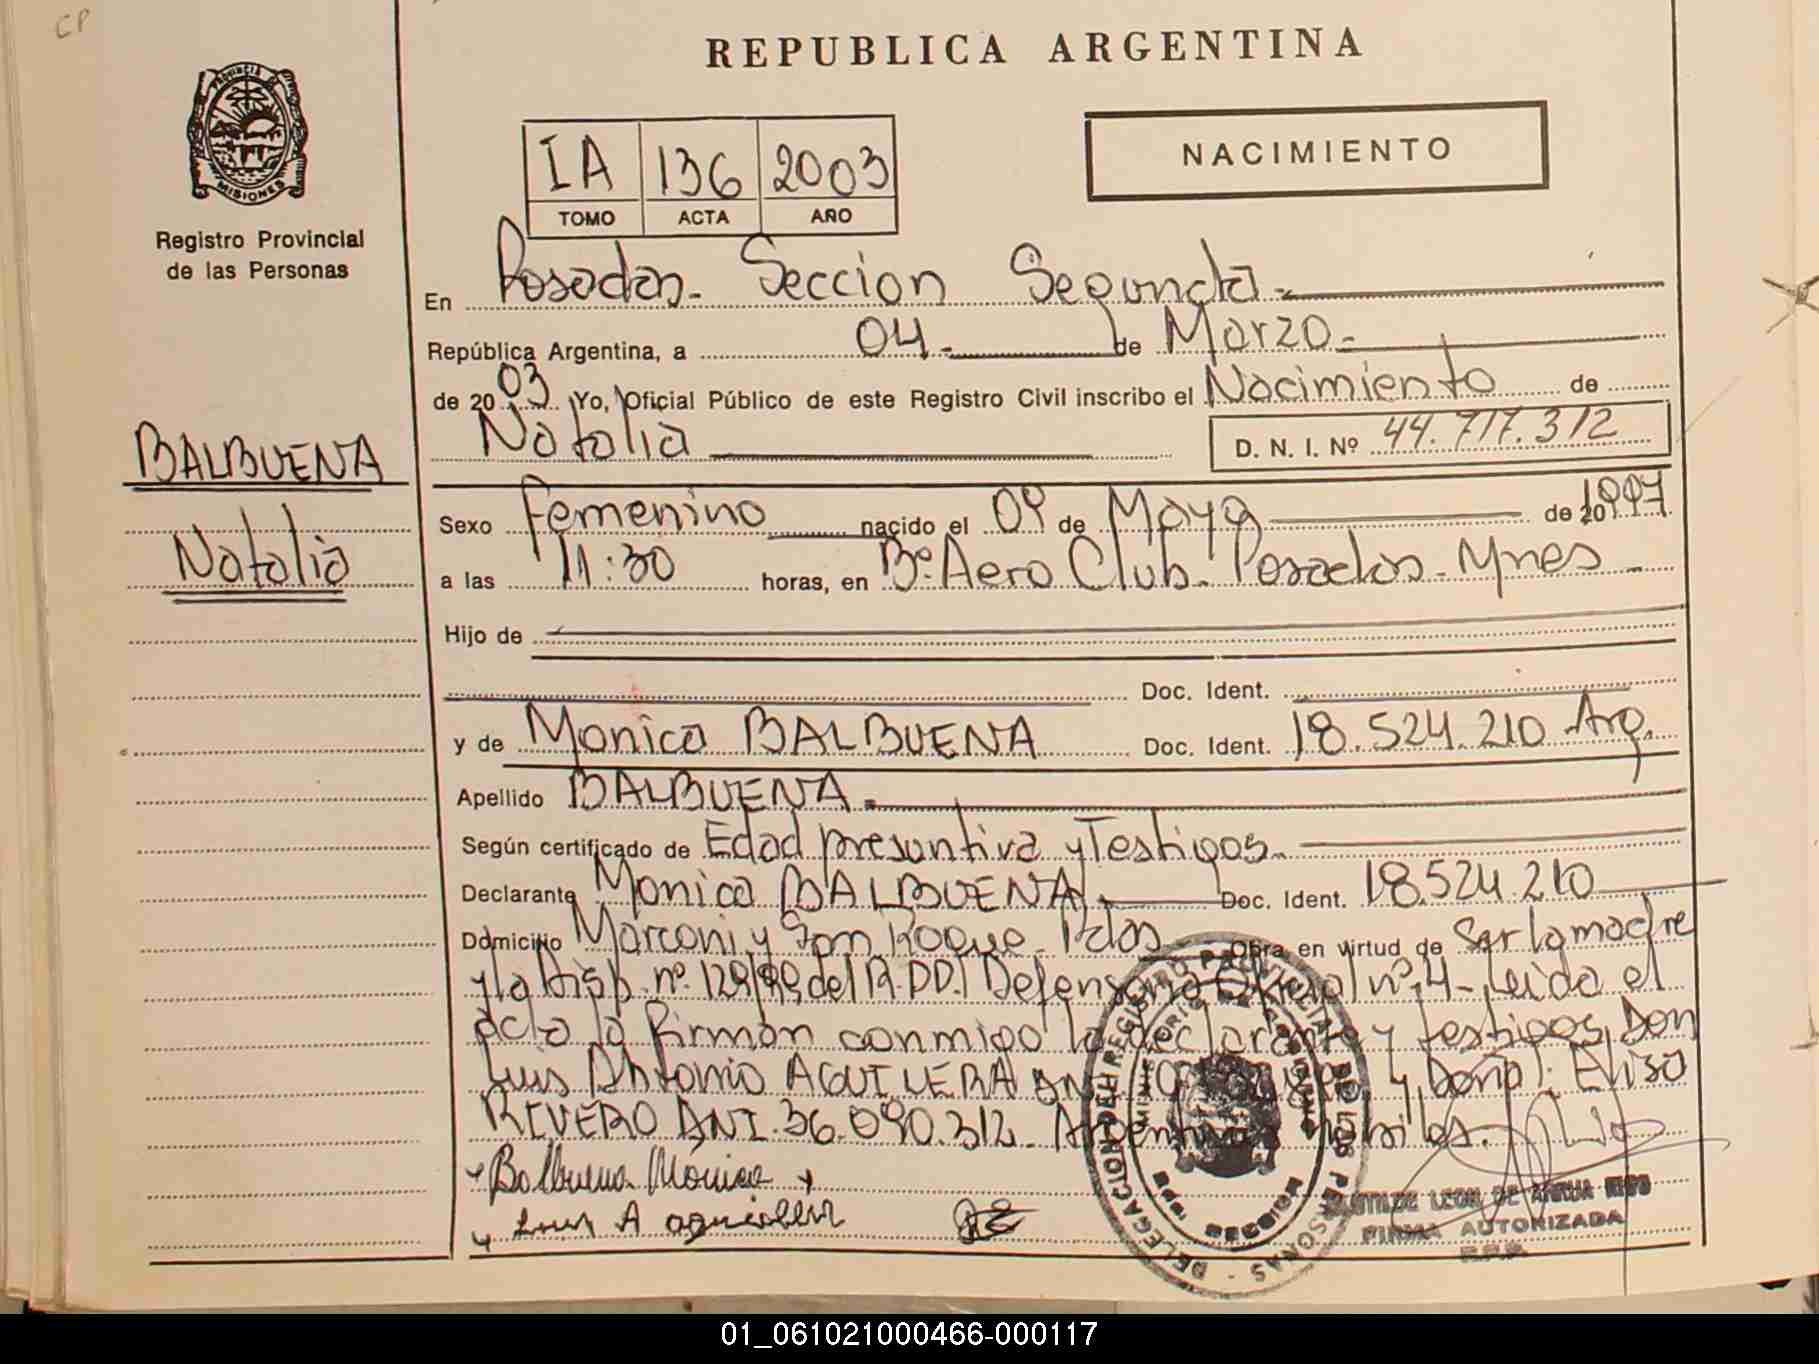 CP
REPUBLICA ARGENTINA
PROVINCIA DE
MISIONES
Registro Provincial
de las Personas
IA 136 2003
TOMO ACTA AÑO
NACIMIENTO
En Posadas - Seccion Segunda.-
República Argentina, a 04.- de Marzo.-
de 2003 Yo, Oficial Público de este Registro Civil inscribo el Nacimiento de
Natalia D. N. I. Nº 44.717.312
BALBUENA
Natalia
Sexo Femenino nacido el 09 de Mayo de 20 1997
a las 11:30 horas, en Bº. Aero Club. Posadas - Mnes -
Hijo de
Doc. Ident.
y de Monica BALBUENA Doc. Ident. 18.524.210 Arg.
Apellido BALBUENA.
Según certificado de Edad presuntiva y Testigos.
Declarante Monica BALBUENA Doc. Ident. 18.524.210
Domicilio Marconi y San Roque - Pdas Obra en virtud de Ser la madre
y la Disp. nº. 129/99 del R.PP. Defensoria Oficial nº. 4 - Leida el
acta la firman conmigo la declarante y testigos Don
Luis Antonio AGUILERA DNI y Doña: Elisa
RIVERO DNI. 36.090.312 - Argentinos habiles.
Balbuena Monica
Luis A aguilera
DELEGACION DEL REGISTRO PROVINCIAL DE LAS PERSONAS
FIRMA AUTORIZADA
01_061021000466-000117